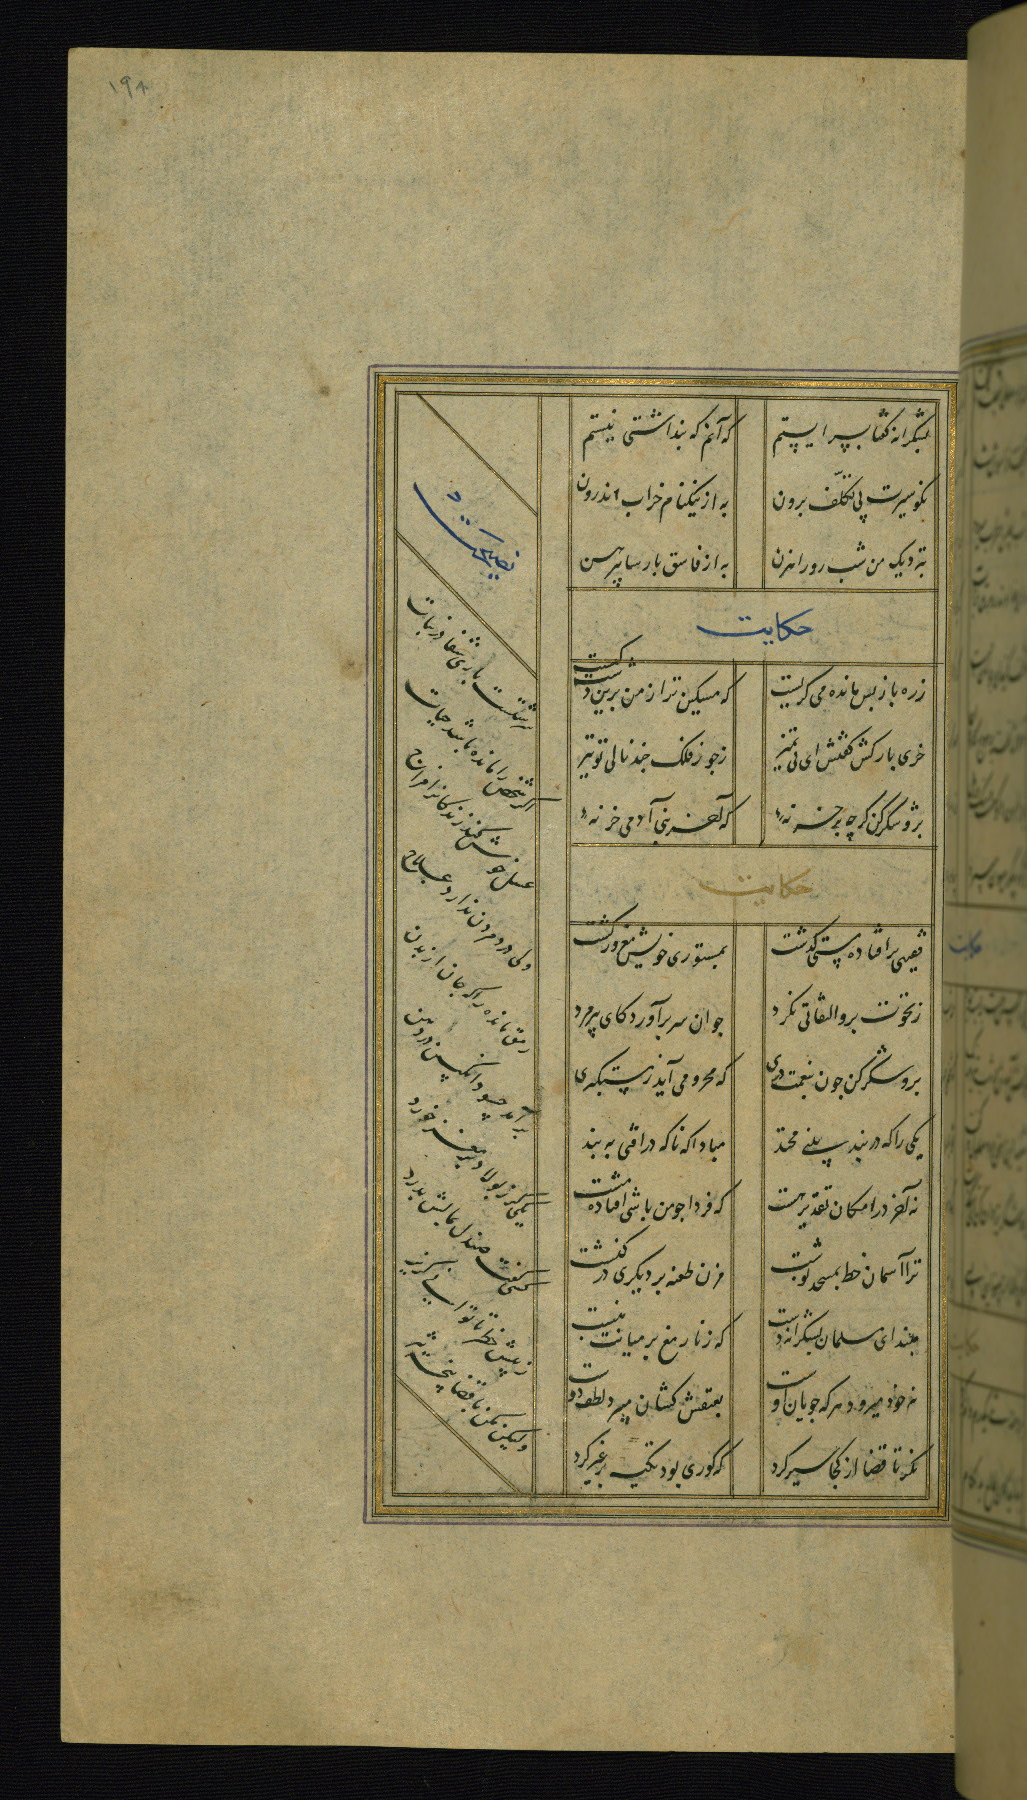 ۱۹۸
بشکرانه گفتا بسر ایستم
که آنم که بنداشتی نیستم
نکو سیرت بی تکلف برون
به از نیکنام خراب اندرون
بنزدیک من شب رو راهزن
به از فاسق پارسا پیرهن
حکایت
زره باز بس مانده می کریست
که مسکین تر از من برین دشت کیست
خری بارکش کفتش ای بی تمیز
ز جور فلک جند نالی تو نیز
برو شکر کن کر چه بر خر نه
که آخر بنی آدمی خر نه
حکایت
فقیهی بر افتاده مستی کذشت
بمستوری خویش مغرور کشت
ز نخوت برو التفاتی نکرد
جوان سر برآورد کای پیرمرد
برو شکر کن جون بنعمت دری
که محرومی آید ز مستکبری
یکی را که در بند بینی مخند
مبادا که ناکه درافتی به بند
نه آخر در امکان تقدیر هست
که فردا جو من باشی افتاده مست
ترا آسمان خط بمسجد نوشت
مزن طعنه بر دیکری در کنشت
ببند ای مسلمان بشکرانه دست
که زنار مغ بر میانت نبست
نه خود میرود هر که جویان اوست
بعنفش کشان میبرد لطف دوست
نکر تا قضا از کجا سیر کرد
که کوری بود تکیه بر غیر کرد
نصیحت
سرشتست باری شفا در نبات
اکر شخص را مانده باشد حیات
عسل خوش کند زندکانرا مزاج
ولی درد مردن ندارد علاج
رمق مانده را که جان از بدن
برآمد چه سود انکبین در دهن
یکی کرز بولاد بر مغز خورد
کسی کفت صندل بمالش بدرد
ز پیش خطر تا توانی کریز
ولیکن مکن با قضا پنجه تیز